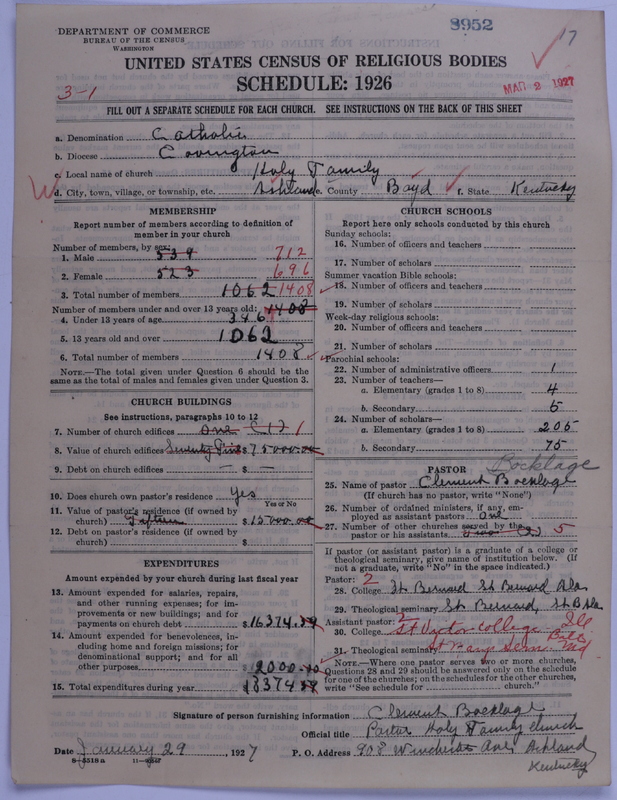 8952
17
DEPARTMENT OF COMMERCE
BUREAU OF THE CENSUS
WASHINGTON
UNITED STATES CENSUS OF RELIGIOUS BODIES
SCHEDULE: 1926
MAR 2 1927
3-1
FILL OUT A SEPARATE SCHEDULE FOR EACH CHURCH. SEE INSTRUCTIONS ON THE BACK OF THIS SHEET
a. Denomination Catholic
b. Diocese Covington
c. Local name of church Holy Family
d. City, town, village, or township, etc. Ashland e. County Boyd f. State Kentucky
MEMBERSHIP
Report number of members according to definition of
member in your church
Number of members, by sex:
1. Male 539 712
2. Female 523 696
3. Total number of members 1062 1408
Number of members under and over 13 years old: 1408
4. Under 13 years of age 346
5. 13 years old and over 1062
6. Total number of members 1408
NOTE.—The total given under Question 6 should be the
same as the total of males and females given under Question 3.
CHURCH BUILDINGS
See instructions, paragraphs 10 to 12
7. Number of church edifices One (1) 1
8. Value of church edifices Seventy Five $75000.00
9. Debt on church edifices — —
10. Does church own pastor's residence yes
Yes or No
11. Value of pastor's residence (if owned by
church) Fifteen $15000.00
12. Debt on pastor's residence (if owned by
church) $
EXPENDITURES
Amount expended by your church during last fiscal year
13. Amount expended for salaries, repairs,
and other running expenses; for im-
provements or new buildings; and for
payments on church debt $16374.
14. Amount expended for benevolences, in-
cluding home and foreign missions; for
denominational support; and for all
other purposes 2000.
15. Total expenditures during year $18374
CHURCH SCHOOLS
Report here only schools conducted by this church
Sunday schools:
16. Number of officers and teachers
17. Number of scholars
Summer vacation Bible schools:
18. Number of officers and teachers
19. Number of scholars
Week-day religious schools:
20. Number of officers and teachers
21. Number of scholars
Parochial schools:
22. Number of administrative officers 1
23. Number of teachers—
a. Elementary (grades 1 to 8) 4
b. Secondary 5
24. Number of scholars—
a. Elementary (grades 1 to 8) 205
b. Secondary 75
PASTOR
Bocklage
25. Name of pastor Clement Bocklage
(If church has no pastor, write "None")
26. Number of ordained ministers, if any, em-
ployed as assistant pastors One
27. Number of other churches served by the
pastor or his assistants 5
If pastor (or assistant pastor) is a graduate of a college or
theological seminary, give name of institution below. (If
not a graduate, write "No" in the space indicated.)
Pastor: 2
28. College St Bernard St Bernard Ala
29. Theological seminary St Bernard, St B Ala
Assistant pastor: 2
30. College St Victor College Ill
31. Theological seminary St Mary Sem. Balt Md
NOTE.—Where one pastor serves two or more churches,
Questions 28 and 29 should be answered only on the schedule
for one of the churches; on the schedules for the other churches,
write "See schedule for church."
Signature of person furnishing information Clement Bocklage
Official title Pastor Holy Family Church
Date January 29, 1927 P. O. Address 908 Winchester Ave, Ashland
Kentucky
8-5518 a